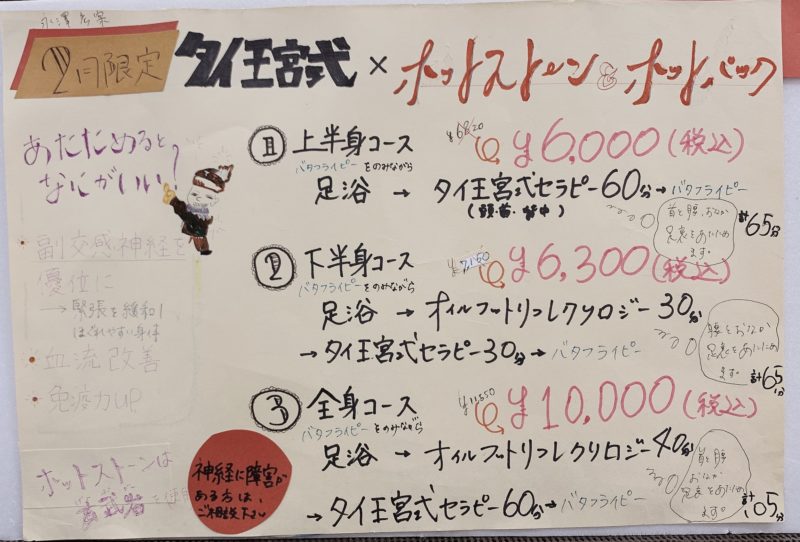 2月限定
タイ王宮式×ホットストーン&ホットパック
あたためると
なにがいい?
・副交感神経を
優位に
→緊張を緩和し
ほぐれやすい身体
・血流改善
・免疫力UP
ホットストーンは
を使用
神経に障害が
ある方は、
ご相談下さい
① 上半身コース
バタフライピーをのみながら
¥6820
¥6,000(税込)
足浴→タイ王宮式セラピー60分→バタフライピー
(頭・首・背中)
首と腰、おなか
足裏をあたため
ます。
計65分
② 下半身コース
バタフライピーをのみながら
¥7150
¥6,300(税込)
足浴→オイルフットリフレクソロジー30分
→タイ王宮式セラピー30分→バタフライピー
腰とおなか
足裏をあたため
ます。
計65分
③ 全身コース
バタフライピーをのみながら
¥11550
¥10,000(税込)
足浴→オイルフットリフレクソロジー40分
→タイ王宮式セラピー60分→バタフライピー
首と腰
おなか
足裏をあたため
ます。
計105分